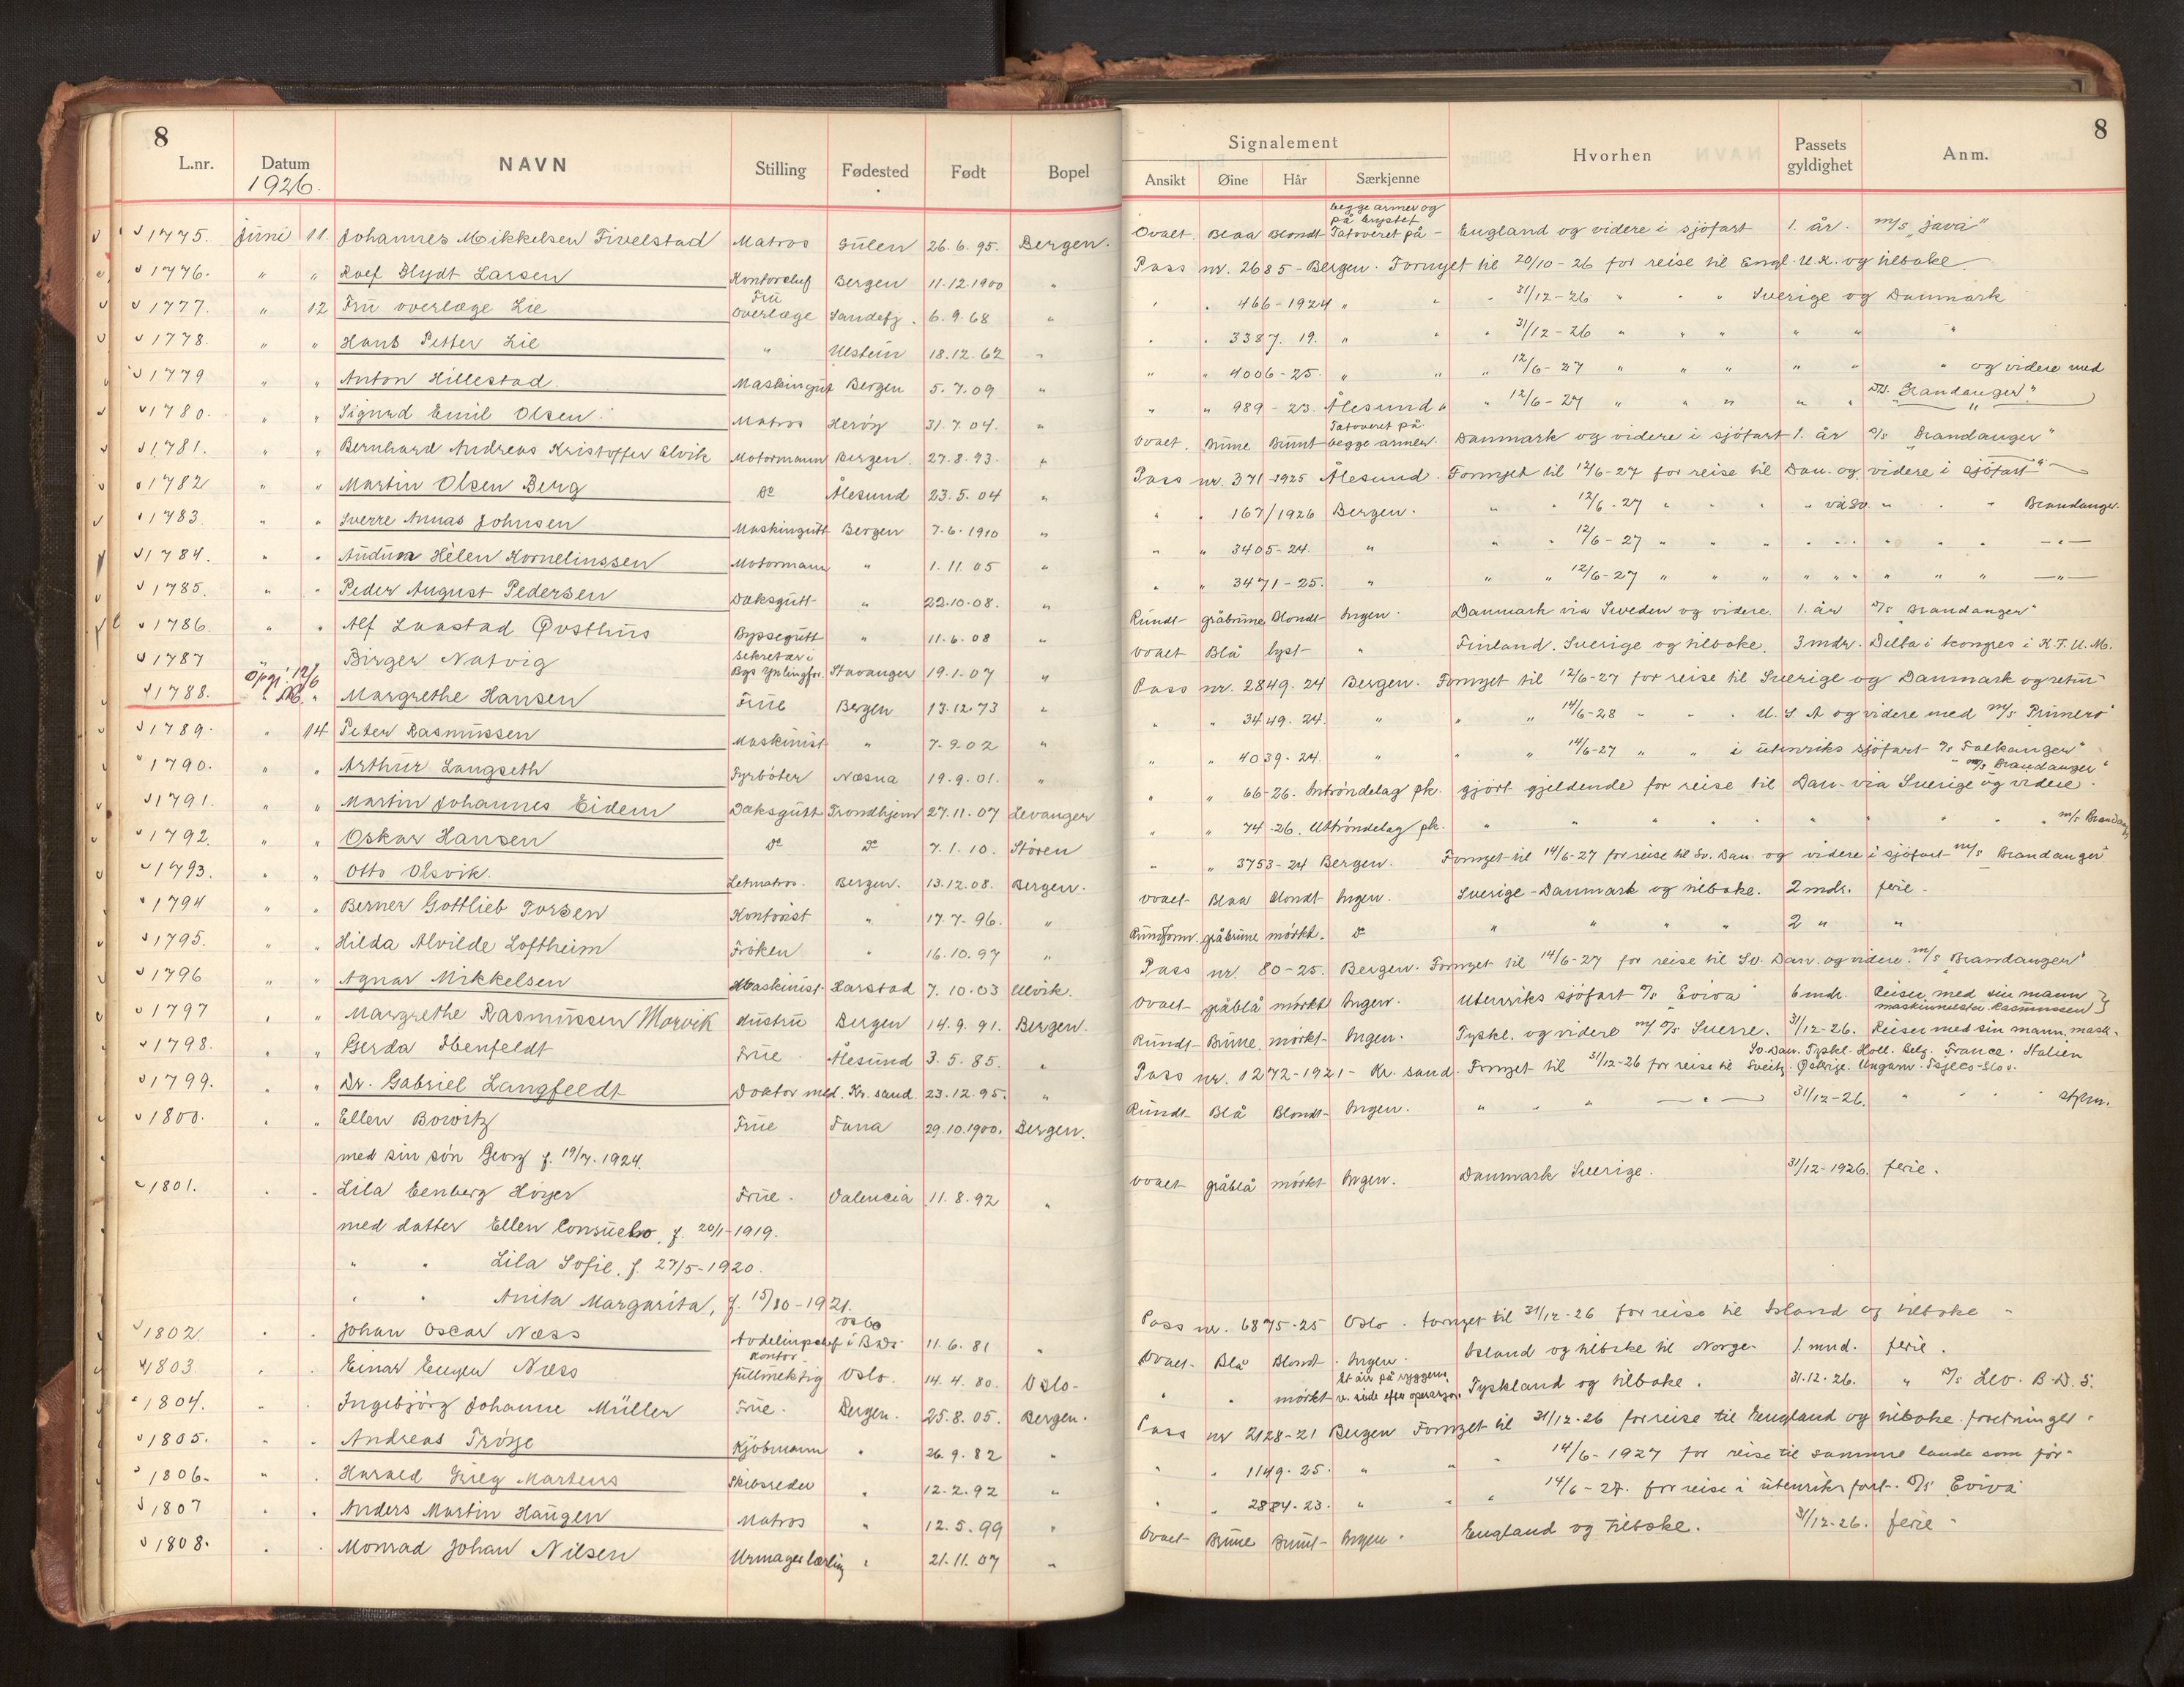 8
L.nr. Datum NAVN Stilling Fødested Født Bopel
1926.
1775. Juni 11. Johannes Mikkelsen Tivelstad Matros Gulen 26.6.95. Bergen.
1776. " " Rolf Blydt Larsen Kontorchef Bergen 11.12.1900 "
1777. " 12 Frü overlæge Lie Frü overlæge Sandefj. 6.9.68 "
1778. " " Hans Petter Lie " Ulstein 18.12.62 "
1779 " " Anton Hillestad. Maskingut Bergen 5.7.09 "
1780. " " Sigurd Emil Olsen. Matros Herøy 31.7.04. "
1781. " " Bernhard Andreas Kristoffer Elvik Motormann Bergen. 27.8.93. "
1782 " " Martin Olsen Berg Do Ålesund 23.5.04 "
1783 " " Sverre Annas Johnsen Maskingutt Bergen 7.6.1910 "
1784. " " Audun Helen Kornelinssen Motormann " 1.11.05 "
1785. " " Peder August Pedersen Daksgutt " 22.10.08. "
1786. " " Alf Laastad Øvsthus Byssegutt " 11.6.08 "
1787 Birger Natvig Sekretær i Bgs Ynlingfor. Stavanger 19.1.07 "
Opgj. 12/6
1788. " Margrethe Hansen Früe Bergen 13.12.73 "
1789. " 14 Peter Rasmussen Maskinist " 7.9.02 "
1790. " " Arthur Langseth Fyrbøter Næsna 19.9.01. "
1791. " " Martin Johannes Eidem Daksgutt Trondhjem 27.11.07 Levanger
1792. " " Oskar Hansen Do Do 7.1.10. Støren
1793. " " Otto Olsvik. Letmatros. Bergen. 13.12.08. Bergen.
1794 " " Berner Gottlieb Torsen Kontorist " 17.7.96. "
1795. " " Hilda Alvilde Loftheim Frøken " 16.10.97 "
1796 " " Agnar Mikkelsen Maskinist Harstad 7.10.03 Ulvik.
1797 " " Margrethe Rasmussen Morvik Hustru Bergen 14.9.91. Bergen.
1798. " " Gerda Ibenfeldt Früe. Ålesund 3.5.85. "
1799. " " Dr. Gabriel Langfeldt Doktor med. Kr. sand. 23.12.95. "
1800. " " Ellen Borvitz Früe Fana 29.10.1900. Bergen.
med sin søn Georg f. 19/7. 1924.
1801. " " Lila Eenberg Høyer Früe. Valencia 11.8.92 "
med datter Ellen Consuelo, f. 20/1-1919.
" " Lila Sofie, f. 27/5-1920.
" " Anita Margarita, f. 15/10-1921.
1802. " " Johan Oscar Næss Avdelingschef i BDS kontor Oslo 11.6.81 "
1803. " " Einar Eugen Næss fullmektig Oslo. 14.4.80. Oslo-
1804. " " Ingebjörg Johanne Müller Früe. Bergen. 25.8.05. Bergen.
1805. " " Andreas Trøye Kjøbmann " 26.9.82 "
1806. " " Harald Grieg Martens Skibsreder " 12.2.92 "
1807 " " Anders Martin Haugen Matros " 12.5.99 "
1808. " " Monrad Johan Nilsen Urmagerlærling " 21.11.07 "
8
Signalement Hvorhen Passets gyldighet Anm.
Ansikt Øine Hår Særkjenne
Ovalt. Blaa Blondt Tatoveret på begge armer og på brystet England og videre i sjøfart 1. år. m/s "Java"
Pass nr. 2685-Bergen. Fornyet til 20/10-26 for reise til Engl. U.K. og tilbake.
" " 466-1924 " " " 31/12-26 " " " Sverige og Danmark
" " 3387. 19. " " " 31/12-26 " " " " " "
" " 4006-25. " " " 12/6-27 " " " " " " og videre med
" " 989-23. Ålesund " " 12/6-27 " " " " " m/s. "Brandanger"
Ovalt. Brune Brunt Tatoveret på begge armer. Danmark og videre i sjøfart 1. år m/s "Brandanger"
Pass nr. 371-1925 Ålesund. Fornyet til 12/6-27 for reise til Dan. og videre i sjøfart
" " 167/1926 Bergen. " " 12/6-27 " " " " via Sv. " " " Brandanger.
" " 3405-24. " " " 12/6-27 " " " " " " " " -"-
" " 3471-25. " " " 12/6-27 " " " " " " " " " -"-
Rundt gråbrune Blondt Ingen. Danmark via Sweden og videre. 1. år m/s "Brandanger"
Ovalt Blå lyst " Finland. Sverige og tilbake. 3 mdr. Delta i kongres i K.F.U.M.
Pass nr. 2849. 24 Bergen. Fornyet til 12/6-27 for reise til Sverige og Danmark og retur
" " 3449. 24. " " " 14/6-28 " " " U.S.A og videre med m/s "Primero"
" " 4039. 24. " " " 14/6-27 " " i utenriks sjøfart m/s "Falkanger"
" " 66-26. Inntrøndelag pk. gjort gjeldende for reise til Dan. via Sverige og videre. m/s "Brandanger"
" " 74-26. Uttrøndelag pk. " " " " " " " " m/s Brandang
" " 3753-24 Bergen. Fornyet til 14/6-27 for reise til Sv. Dan. og videre i sjøfart m/s "Brandanger"
Ovalt Blaa blondt Ingen. Sverige-Danmark og tilbake. 2 mdr. ferie.
Rundform. gråbrune mørkt. Do " " " " 2 " "
Pass nr. 80-25. Bergen. Fornyet til 14/6-27 for reise til Sv. Dan. og videre. m/s "Brandanger"
Ovalt gråblå mørkt Ingen. Utenriks sjøfart D/s "Eviva" 6 mdr. Reiser med sin mann maskinmester Rasmussen
Rundt Brune. mørkt Ingen. Tyskl. og videre m/ D/s Sverre. 31/12-26. Reiser med sin mann, mask.
Sv. Dan. Tyskl. Holl. Belg. France. Italien
Pass nr. 1272-1921- Kr. sand. Fornyet til 31/12-26 for reise til Sveitz. Østrige. Ungarn. Tsjeco-Slov.
Rundt Blå Blondt Ingen. " " " -"- 31/12-26. " " "
Ovalt gråblå mørkt Ingen. Danmark Sverige. 31/12-1926. ferie.
Pass nr. 6875-25 Oslo. Fornyet til 31/12-26 for reise til Island og tilbake
Ovalt Blå Blondt. Ingen. Island og tilbake til Norge. 1. mnd. ferie.
" " mørkt Et arr på ryggens v. side efter operasjon. Tyskland og tilbake. 31.12.26. " D/s Leo. B.D.S.
Pass nr 2128-21 Bergen Fornyet til 31/12-26 for reise til England og tilbake. forretninger.
" " 1149. 25. " " " 14/6-1927 for reise til samme lande som før.
" " 2884-23. " " " 14/6-27. for reise i utenriks fart. D/s Eviva
Ovalt Brune Brunt Ingen. England og tilbake. 31/12-26. ferie